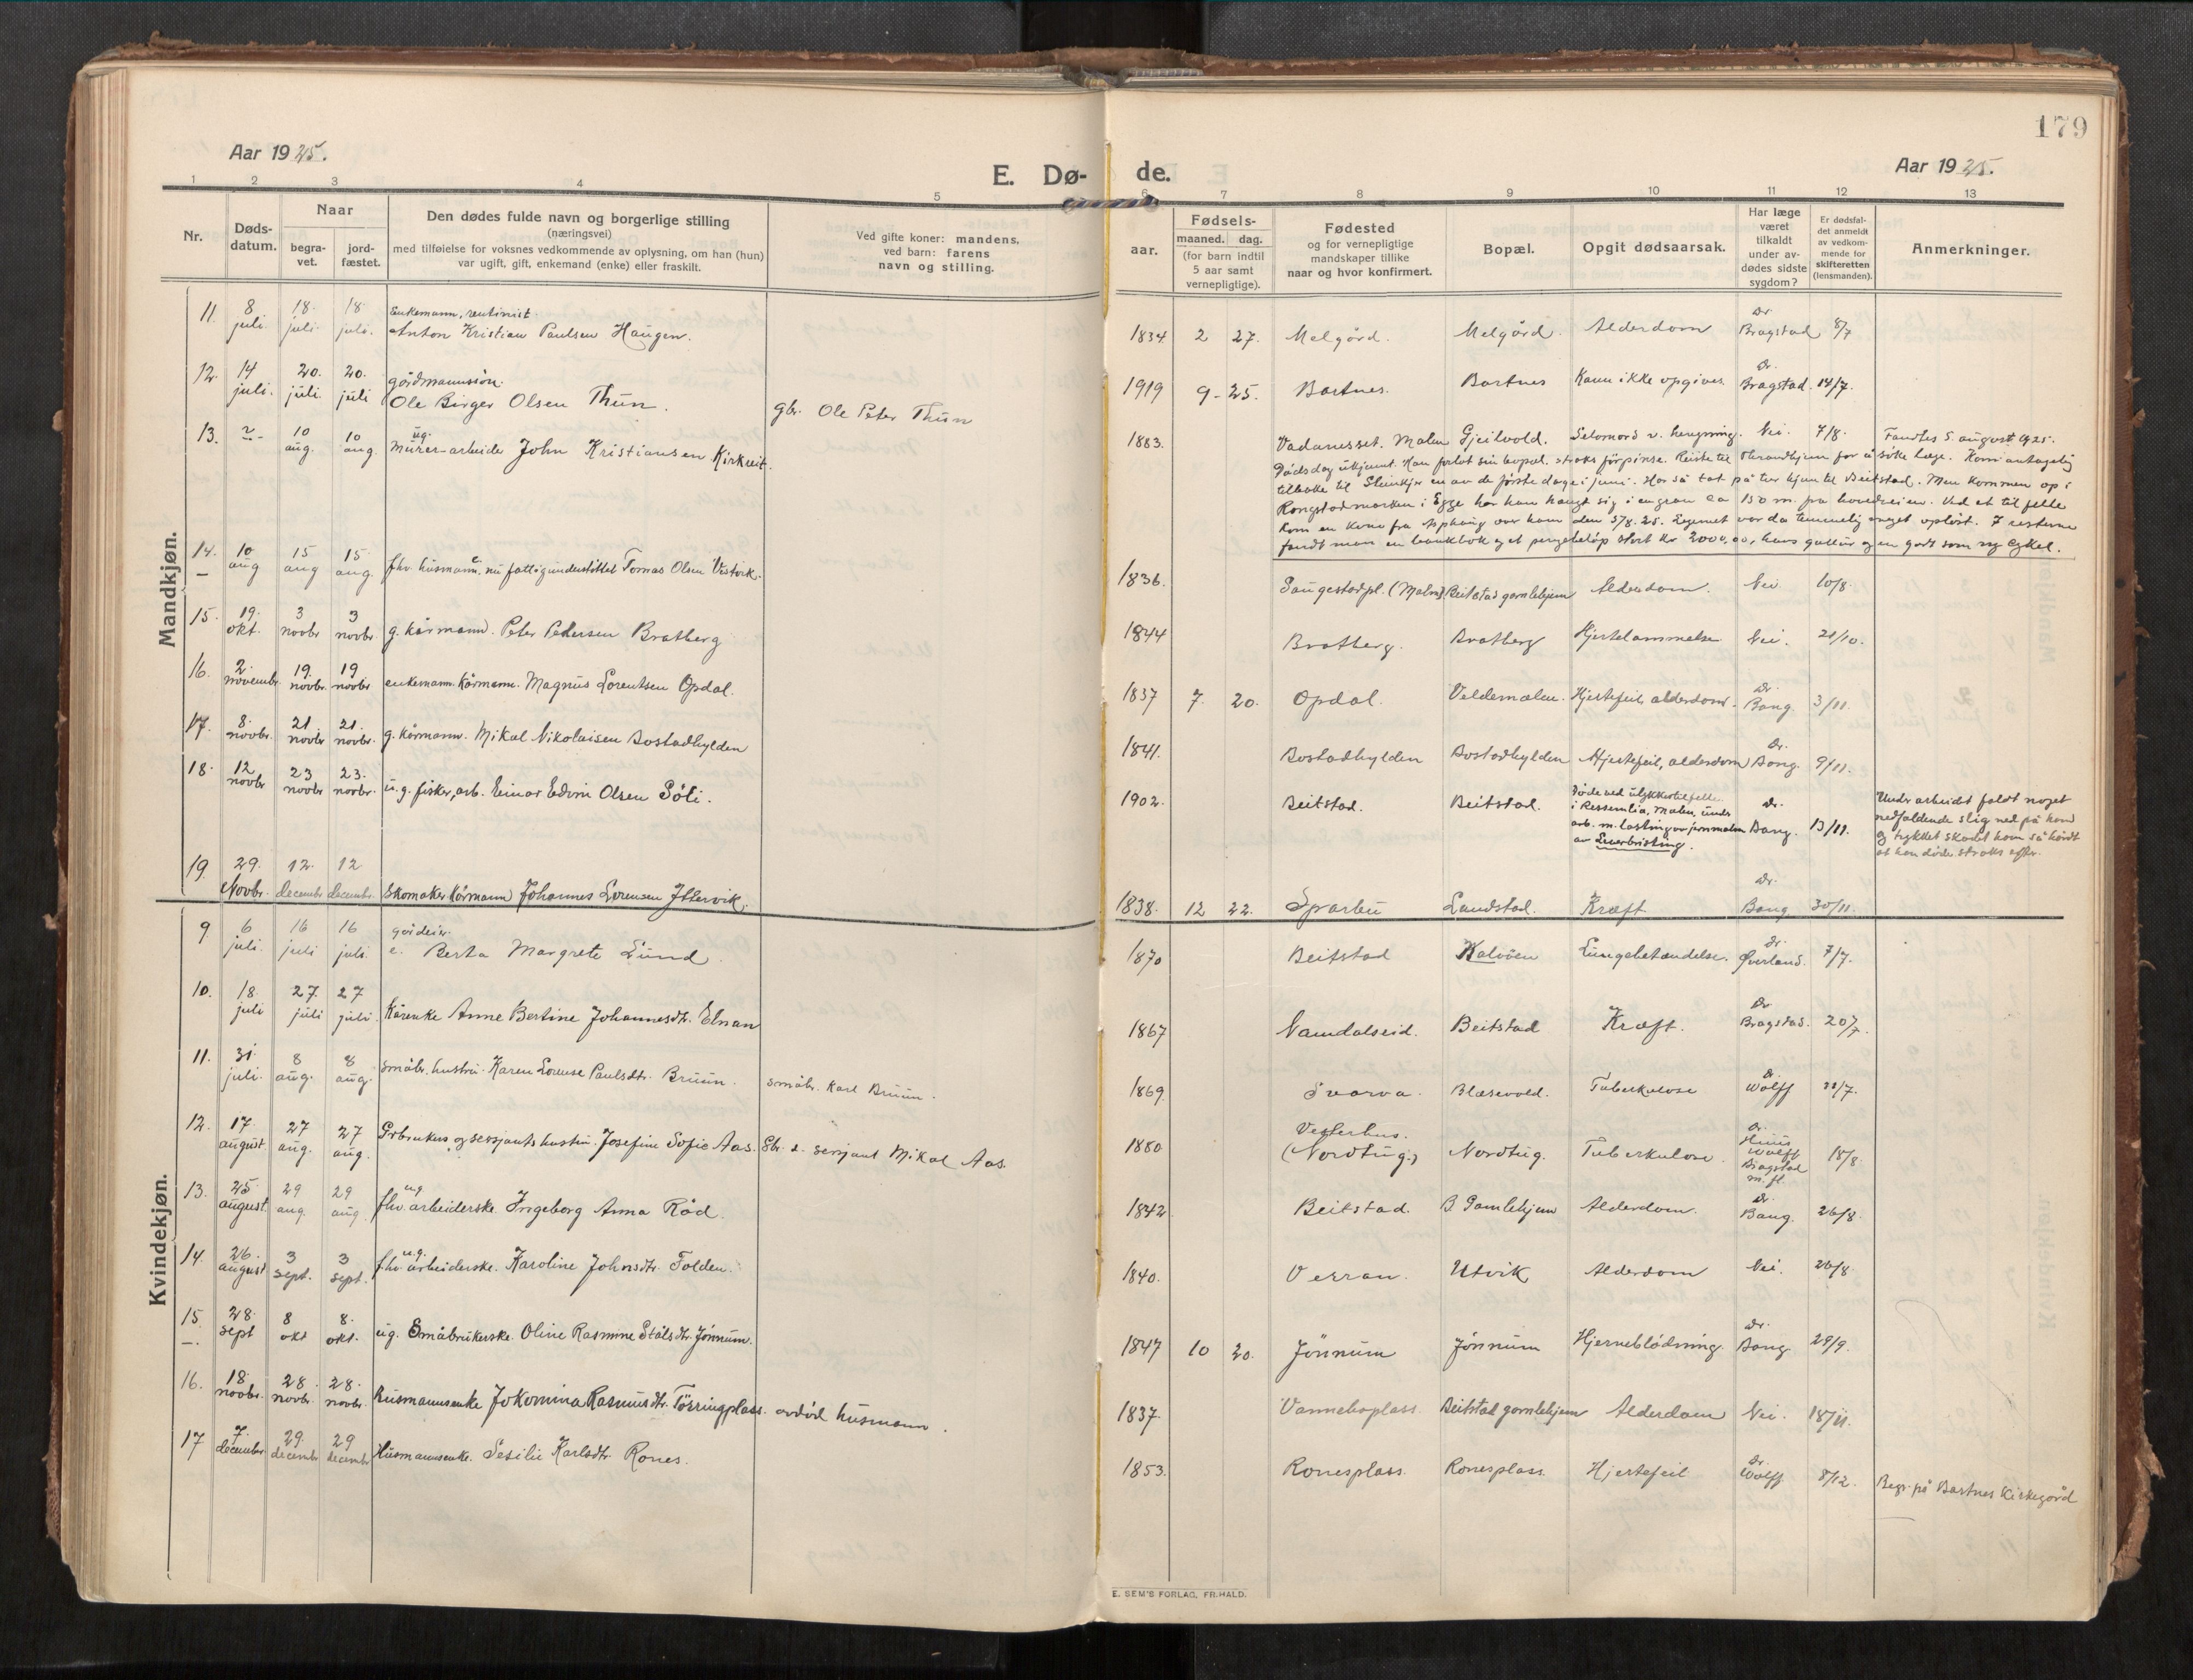 179
Aar 1925.
E. Dø- de.
Aar 1925.
1 2 3 4 5 6 7 8 9 10 11 12 13
Nr.
Døds-
datum.
Naar
begra-
vet.
jord-
fæstet.
Den dødes fulde navn og borgerlige stilling
(næringsvei)
med tilføielse for voksnes vedkommende av oplysning, om han (hun)
var ugift, gift, enkemand (enke) eller fraskilt.
Ved gifte koner: mandens,
ved barn: farens
navn og stilling.
aar.
Fødsels-
maaned. dag.
(for barn indtil
5 aar samt
vernepligtige).
Fødested
og for vernepligtige
mandskaper tillike
naar og hvor konfirmert.
Bopæl.
Opgit dødsaarsak.
Har læge
været
tilkaldt
under av-
dødes sidste
sygdom?
Er dødsfal-
det anmeldt
av vedkom-
mende for
skifteretten
(lensmanden).
Anmerkninger.
Mandkjøn.
11. 8 juli. 18 juli. 18 juli. Enkemann, rentinist. Anton Kristian Paulsen Haugen. 1834 2 27. Melgård. Melgård. Alderdom Dr Bragstad 8/7
12. 14 juli. 20. juli. 20. juli gårdmannssön. Ole Birger Olsen Thun. gbr. Ole Peter Thun 1919 9 - 25. Bartnes. Bartnes Kann ikke opgives. Dr. Bragstad. 14/7.
13. ? - 10 aug. 10 aug. ug. Murer-arbeider John Kristiansen Kirkreit. 1883. Vadanesset. Malm Gjeilvold. Selvmord v. hengning. Nei. 7/8. Fandtes 5. august 1925.
Dødsdag ukjent. Han forlot sin bopæl straks før pinse. Reiste til Throndhjem for å söke læge. Kom antagelig
tilbake til Steinkjer en av de første dage i juni. Har så tat på tur hjem til Beitstad. Men kommen op i
Rongstadmarken i Egge har han hængt sig i en gran ca 150 m. fra hovedveien. Ved et tilfelle
kom en kone fra Asphaug over ham den 5/8. 25. Legemet var da temmelig meget oplöst. I resterne
fandt man en bankbok og et pengebelöp stort kr 2000,00, hans gulur og en godt som ny cykel.
14. 10 aug 15 aug 15 aug. fhv. husmann e. nu fattigunderstöttet Tomas Olsen Vestvik. 1836. Saugestadpl. (Malm) Beitstad gamlehjem Alderdom. Nei 10/8.
15. 19. okt. 3 novbr 3 novbr. g. kårmann. Peter Pedersen Bratberg 1844 Bratberg. Bratberg Hjertelammelse Nei. 21/10.
16. 2. november. 19. novbr. 19 novbr enkemann. Kårmann. Magnus Lorentsen Opdal. 1837 7. 20. Opdal. Veldemælen. Hjertefeil, alderdom. Dr Bang. 3/11.
17. 8. novbr. 21 novbr 21. novbr. g. kårmann. Mikal Nikolaisen Bostadhylden 1841. Bostadhylden Bostadhylden Hjertefeil, alderdom Dr. Bang. 9/11.
18. 12 novbr 23 novbr 23. novbr. u.g. fisker, arb. Einar Edvin Olsen Söli. 1902. Beitstad. Beitstad. Döde ved ulykkestilfelle
i Ressemlia, Malm, under
arb. m. lasting av jernmalm
av Leverbristing. Dr. Bang. 13/11. Under arbeidet faldt noget
nedfaldende slig ned på ham
og trykket skadet ham så hårdt
at han döde straks efter.
19. 29. Novbr. 12. decembr 12 decembr. Skomaker Kårmann Johannes Lorensen Yttervik. 1838. 12 22. Sparbu Landstad. Kræft Dr. Bang 30/11.
Kvindekjøn.
9 6 juli. 16 juli 16 juli. gårdeier. e. Berta Margrete Lund. 1870 Beitstad Kalvöen Lungebetændelse. Dr. Øverland. 7/7.
10. 18. juli 27. juli 27 juli. Kårenke Anne Bertine Johannesdtr. Elnan 1867 Namdalseid. Beitstad Kræft. Dr Bragstad. 20/7.
11. 31. juli. 8 aug. 8 aug. småbr. hustru. Karen Lorense Paulsdtr. Bruun. småbr. Karl Bruun. 1869. Svarva. Blæsevold. Tuberkulose Dr. Wolff 31/7.
12. 17. august. 27 aug. 27 aug. Gbrukers og sersjants hustru. Josefine Sofie Aas. Gbr. & sersjant Mikal Aas. 1880 Vesterhus. (Nordtug.) Nordtug. Tuberkulose. Dr. Huus Wolff Bragstad m. fl. 18/8.
13. 25. august. 29 aug. 29 aug. ug. fhv. arbeiderske. Ingeborg Anna Röd. 1842. Beitstad. B. Gamlehjem Alderdom. Dr. Bang. 26/8.
14. 26. august 3 sept. 3 sept. u.g. fhv. arbeiderske. Karoline Johnsdtr. Folden. 1840. Verran. Utvik Alderdom Nei. 26/8.
15. 28. sept 8 okt 8. okt. ug. Småbrukerske. Oline Rasmine Stålsdtr. Jönnum. 1847 10 20. Jönnum Jönnum Hjerneblödning. Dr. Bang 29/9.
16. 18. novbr. 28. novbr. 28. novbr. Husmannsenke Jokomina Rasmusdtr. Törringplass. avdöd husmann. 1837. Vanneboplass. Beitstad gamlehjem Alderdom Nei. 18/11.
17 7. december 29. decembr 29 decembr Husmannsenke. Sesilie Karlsdtr. Rones. 1853. Ronesplass. Ronesplass. Hjertefeil Dr. Wolff 8/12. Begr. på Bartnes Kirkegård
E. SEM'S FORLAG, FR.HALD.